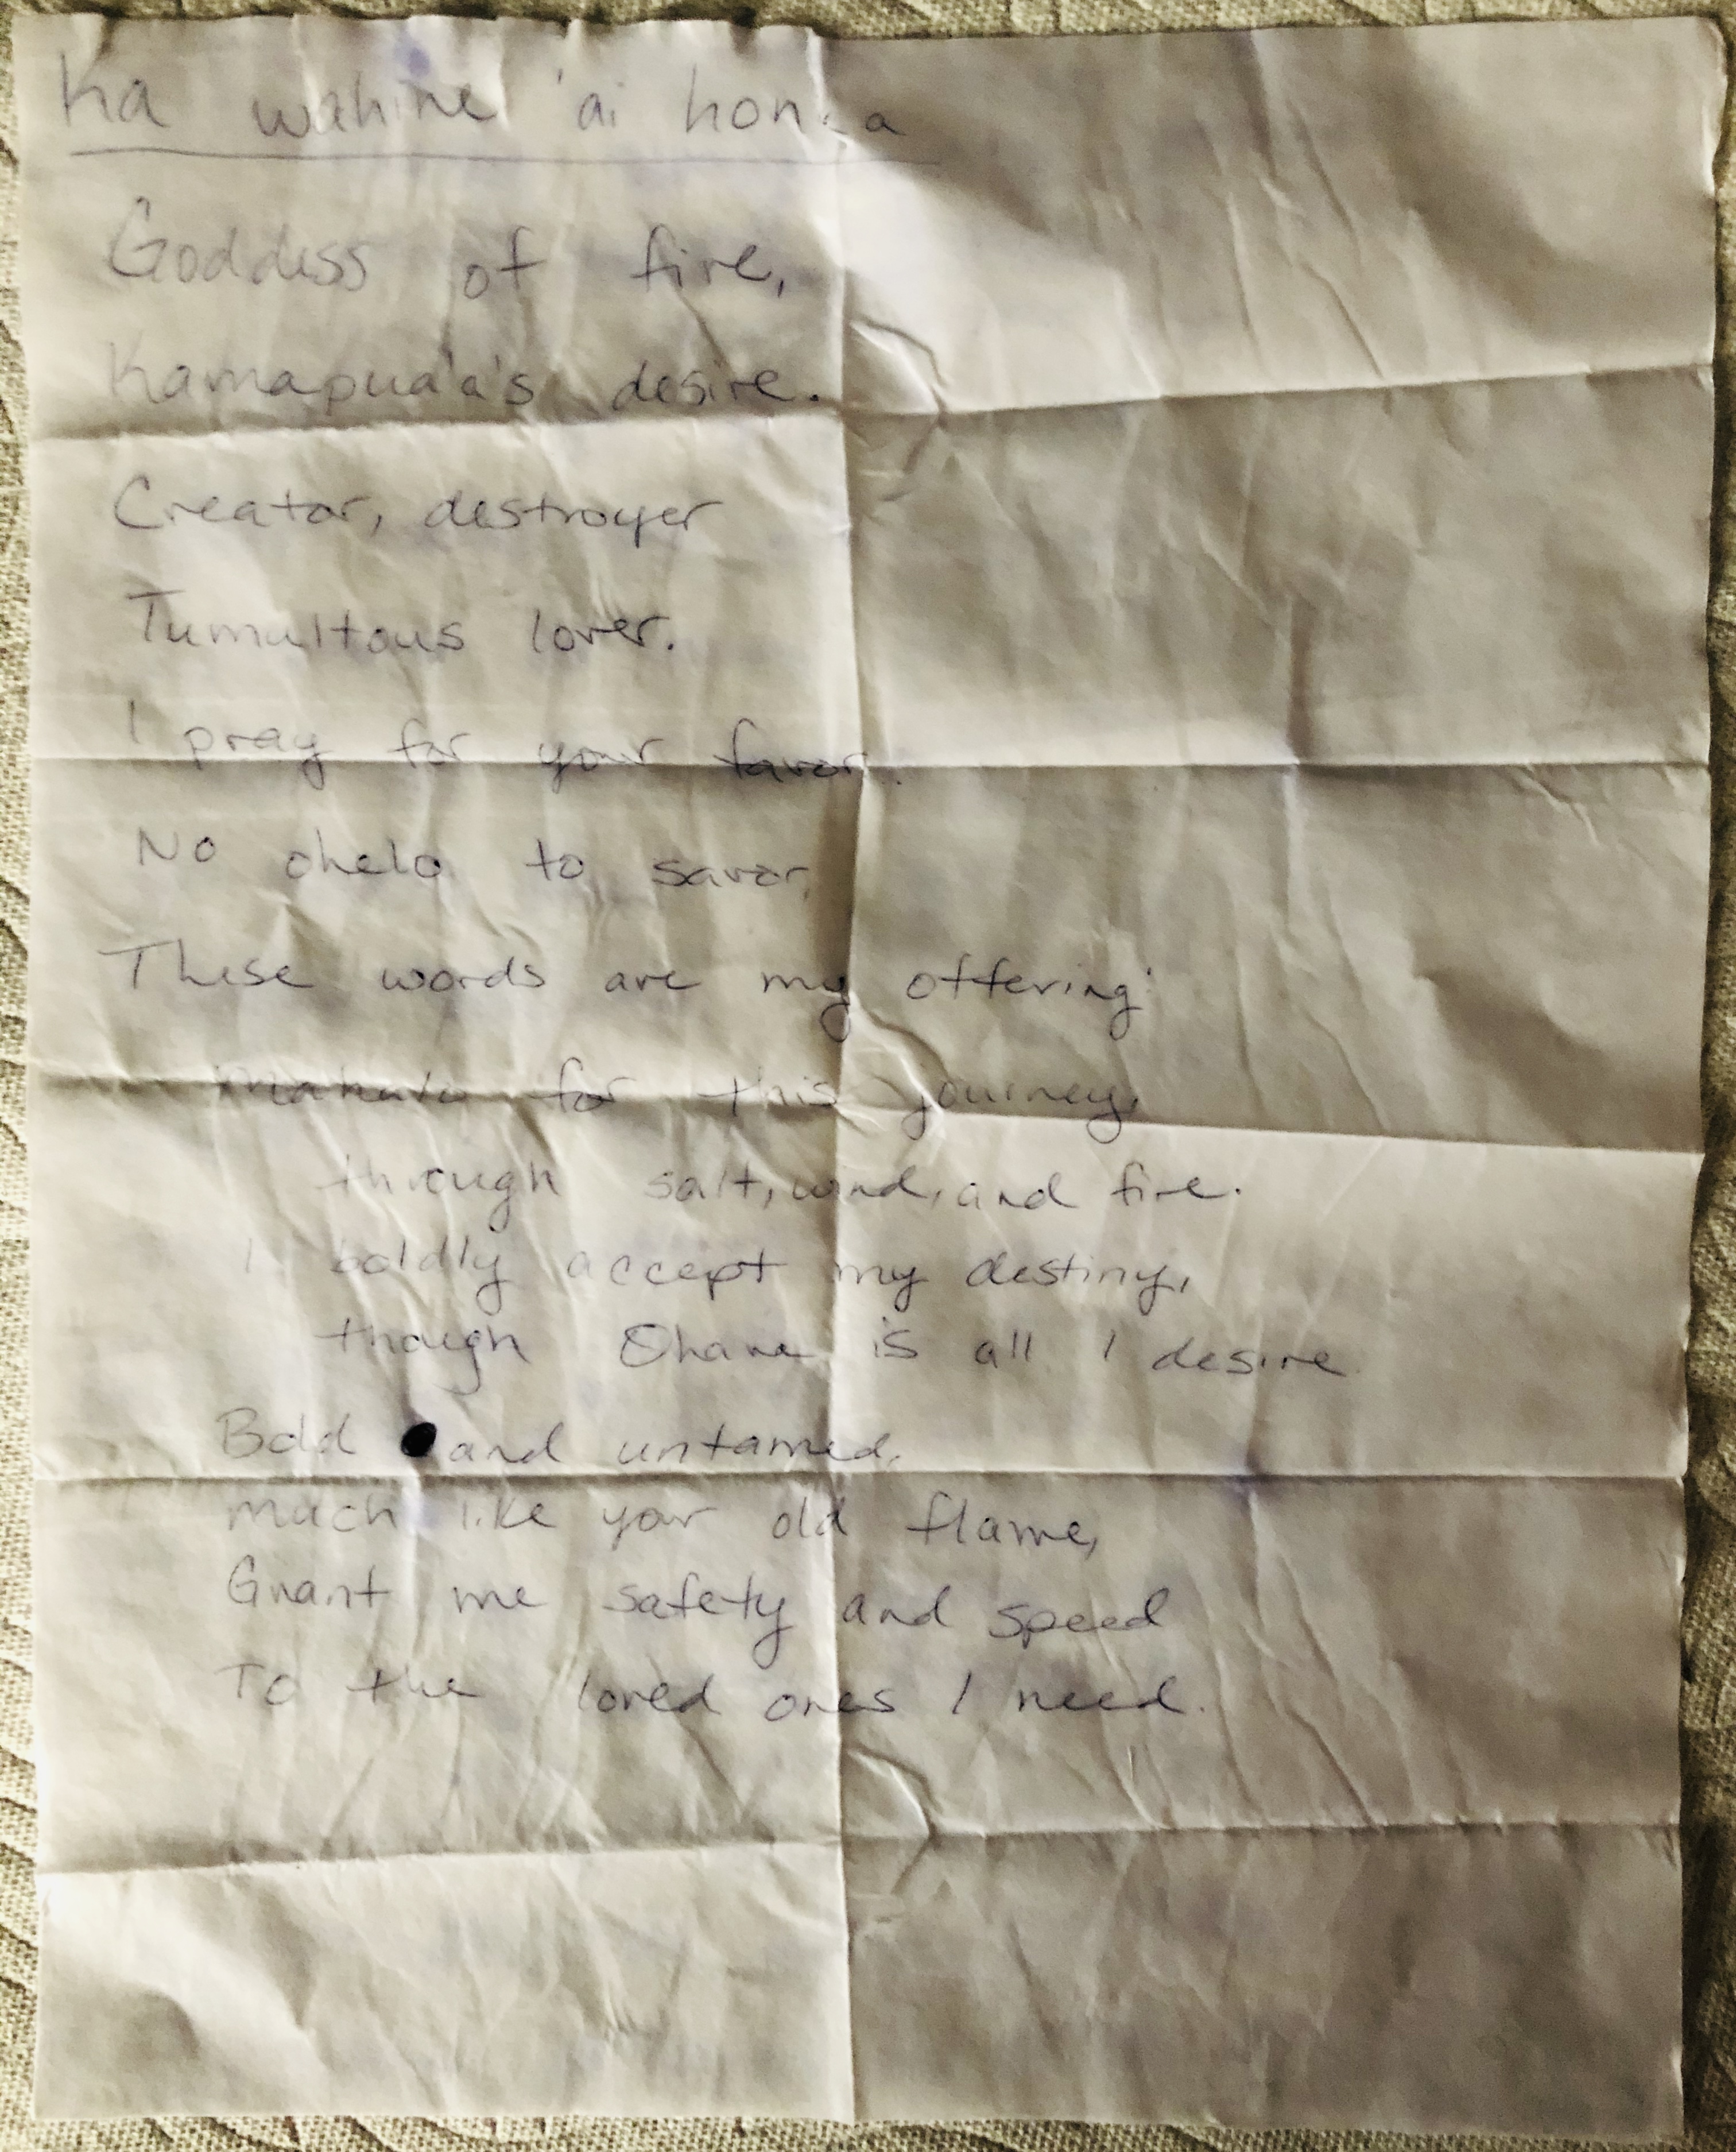 Ka wahine 'ai honua
Goddess of fire,
Kamapua'a's desire.
Creator, destroyer
Tumultous lover.
I pray for your favor.
No ohelo to savor,
These words are my offering:
Mahalo for this journey,
through salt, wind, and fire.
I boldly accept my destiny,
though Ohana is all I desire.
Bold and untamed,
much like your old flame,
Grant me safety and speed
To the loved ones I need.